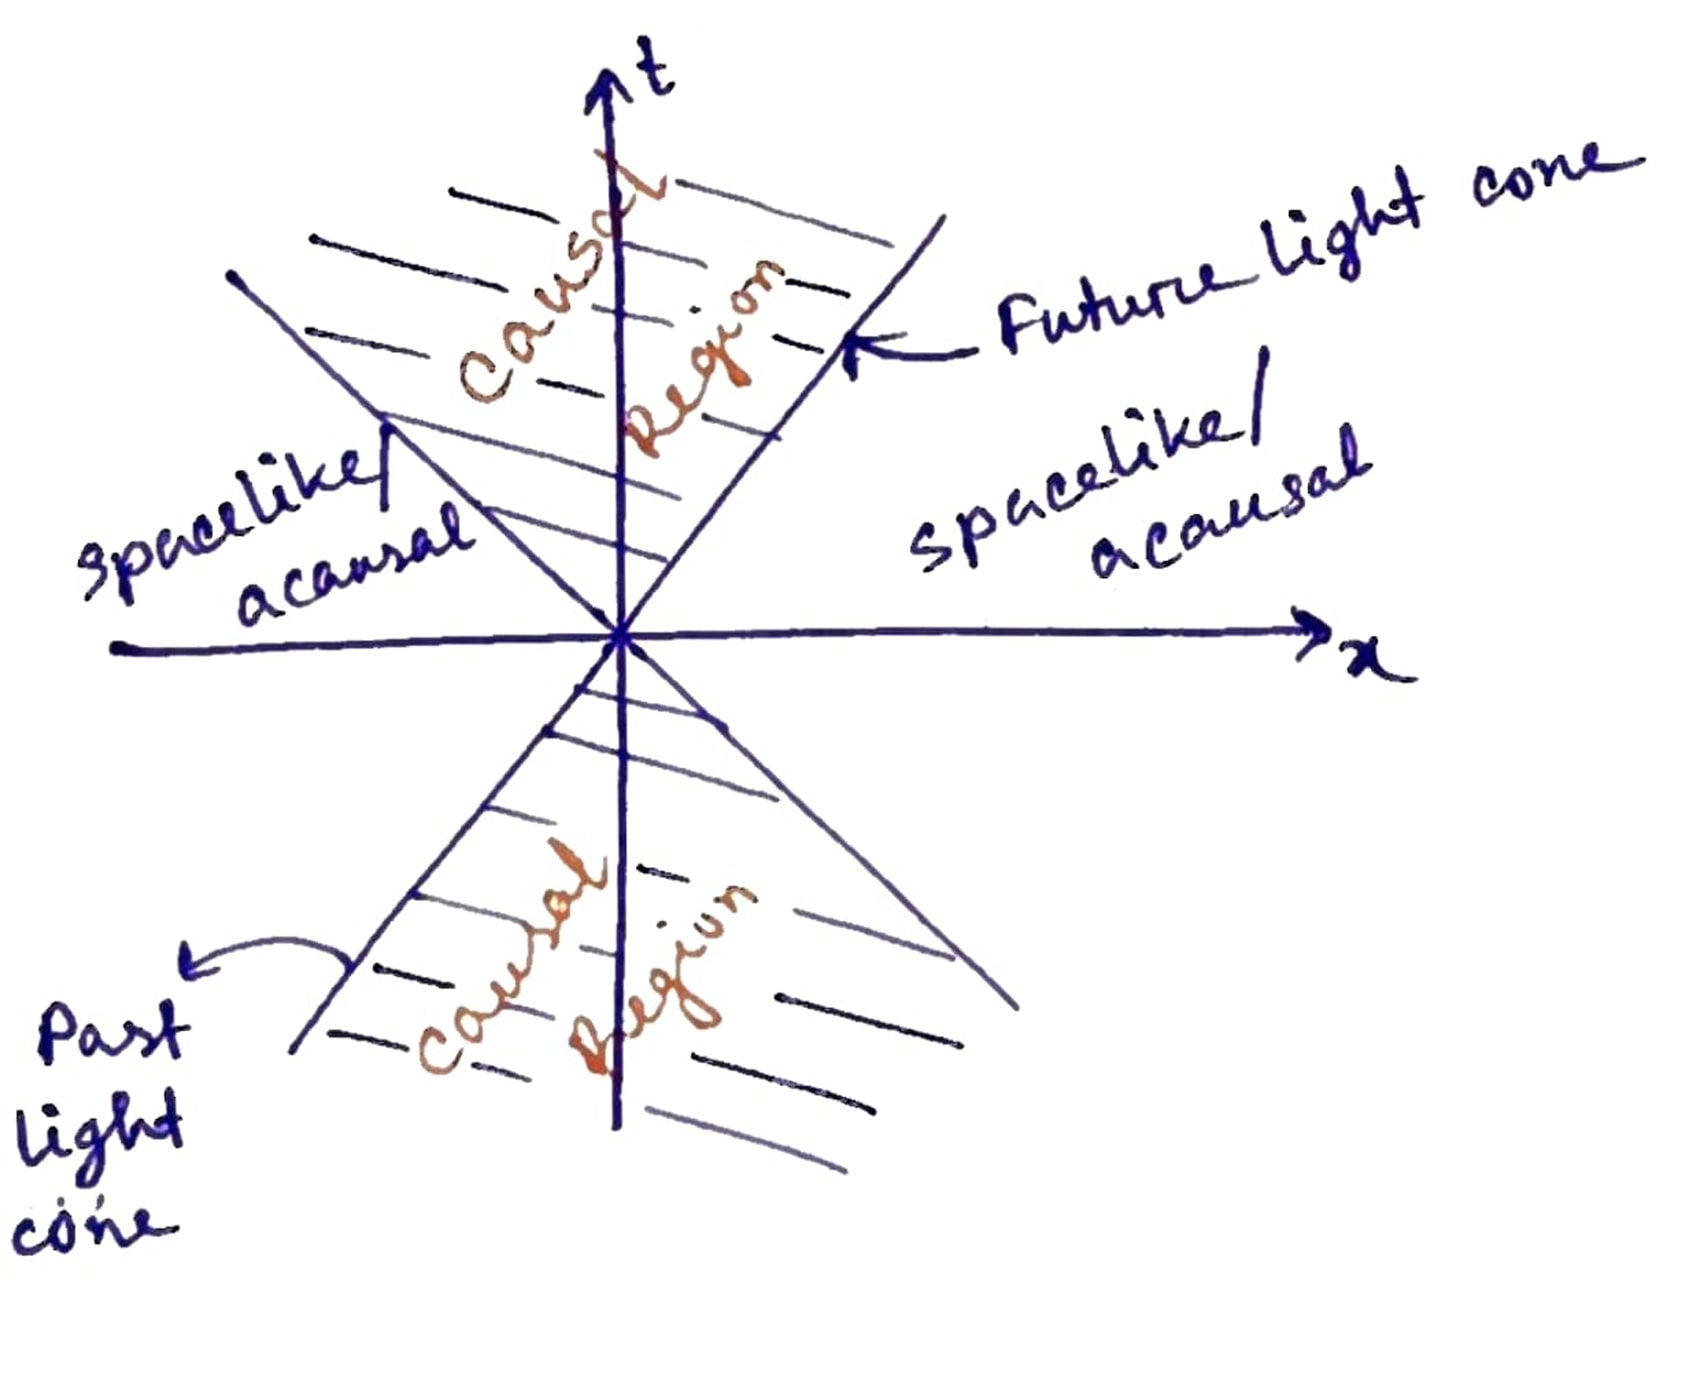 t
Causal
Region
Future light cone
spacelike/
acausal
spacelike/
acausal
x
Causal
Region
Past
light
cone